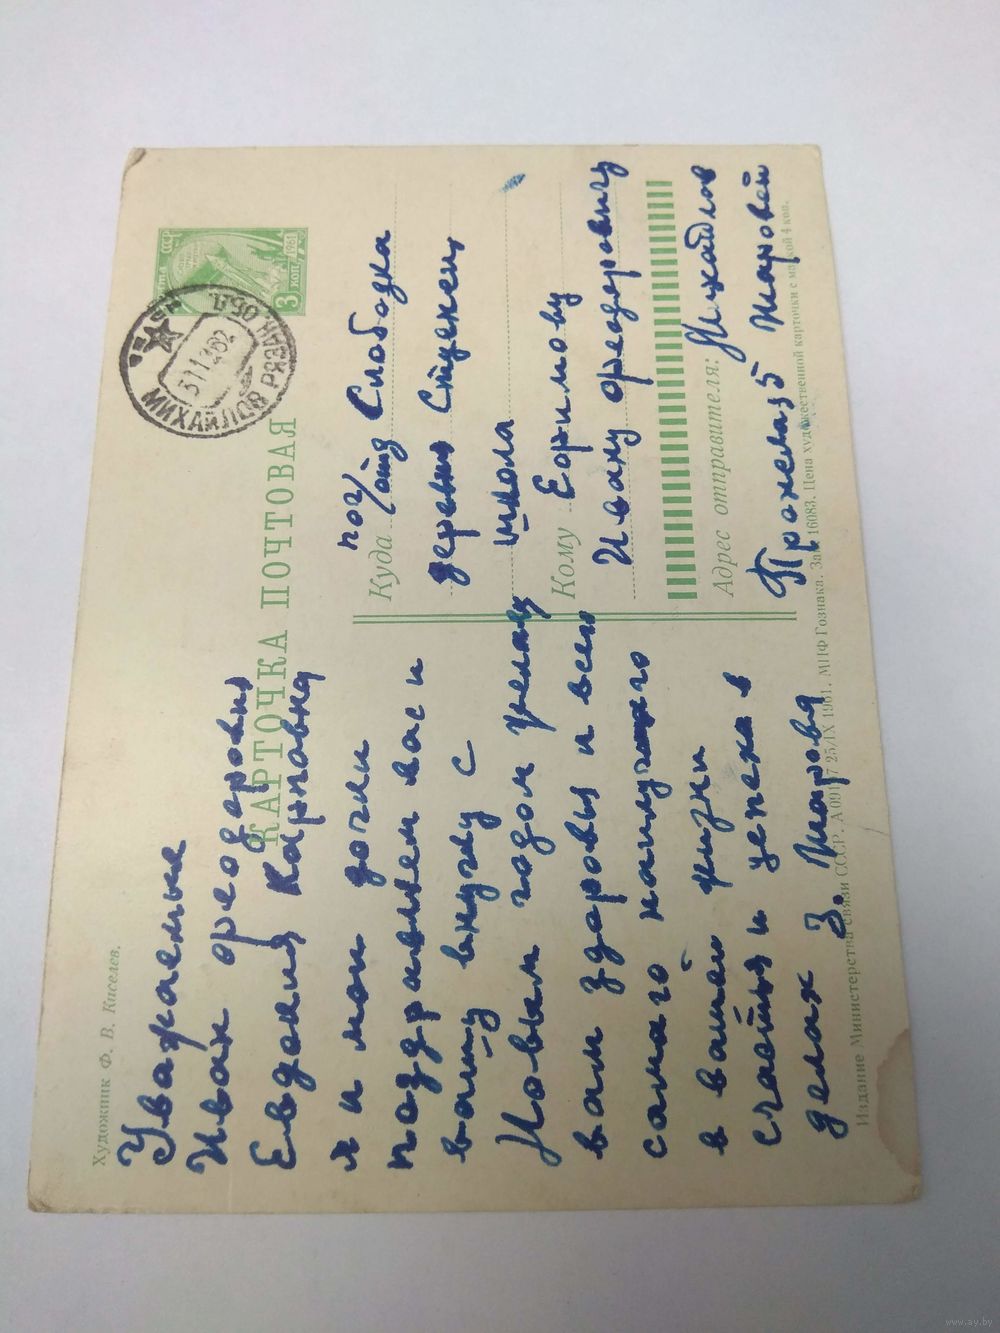 Художник Ф. В. Киселев.
КАРТОЧКА ПОЧТОВАЯ
ПОЧТА СССР
1961
3 КОП.
МИХАЙЛОВ РЯЗАН. ОБЛ.
311262
Уважаемые
Иван Феодорович
Евдокия Карповна
я и мои дочки
поздравляем вас и
вашу внучку с
Новым годом желаю
вам здоровья и всего
самого наилучшего
в вашей жизни
счастья и успеха в
делах З. Жарова
Куда поч/отд Слободка
деревня Студенец
школа
Кому Ефимову
Ивану Феодоровичу
Адрес отправителя: Михайлов
5 Жаровой
Издание Министерства связи СССР. А09117 25/IX 1961. МПФ Гознака. Зак. 16083. Цена художественной карточки с маркой 4 коп.
www.ay.by